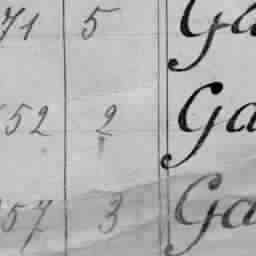 71 5 Ga
52 2 Ga
57 3 Ga